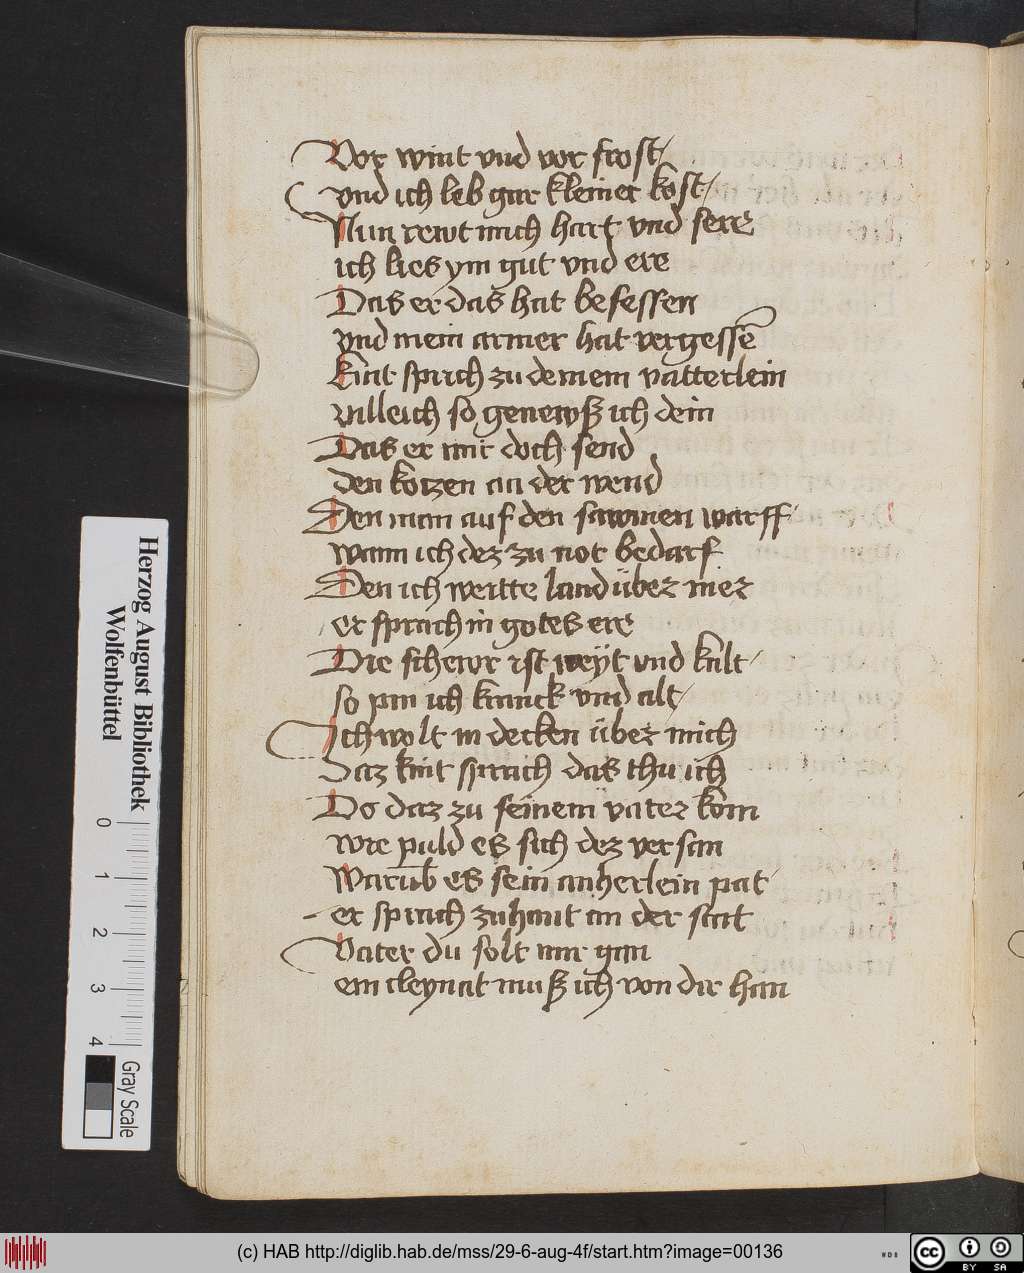 Vor wint vnd vor frost/
vnd ich leb gar kleiner kost/
Nun rewt mich hart vnd sere
ich lies ym gut vnd ere
Das er das hat besessen
vnd mein armer hat vergessē
Kint sprich zu deinem vatterlein
villeich so genewß ich dein
Das er mir doch send
den kotzen an der wend
Den man auf den sawmen warff
wann ich dez zu not bedarf
Den ich veitte land über mer
er sprach in gotes ere
Die schewr ist weÿt vnd kalt/
so pin ich kranck vnd alt/
Ich wolt in decken über mich
Daz kint sprach das thu ich
Do daz zu seinem vater kom
wie puld es sich dez versan
Warūb es sein anherlein pat
er sprach zuhant an der stat
Vater du solt mir gan
ein cleynat muß ich von dir han
Herzog August Bibliothek
Wolfenbüttel
0 1 2 3 4
Gray Scale
(c) HAB http://diglib.hab.de/mss/29-6-aug-4f/start.htm?image=00136
WDB
cc BY SA